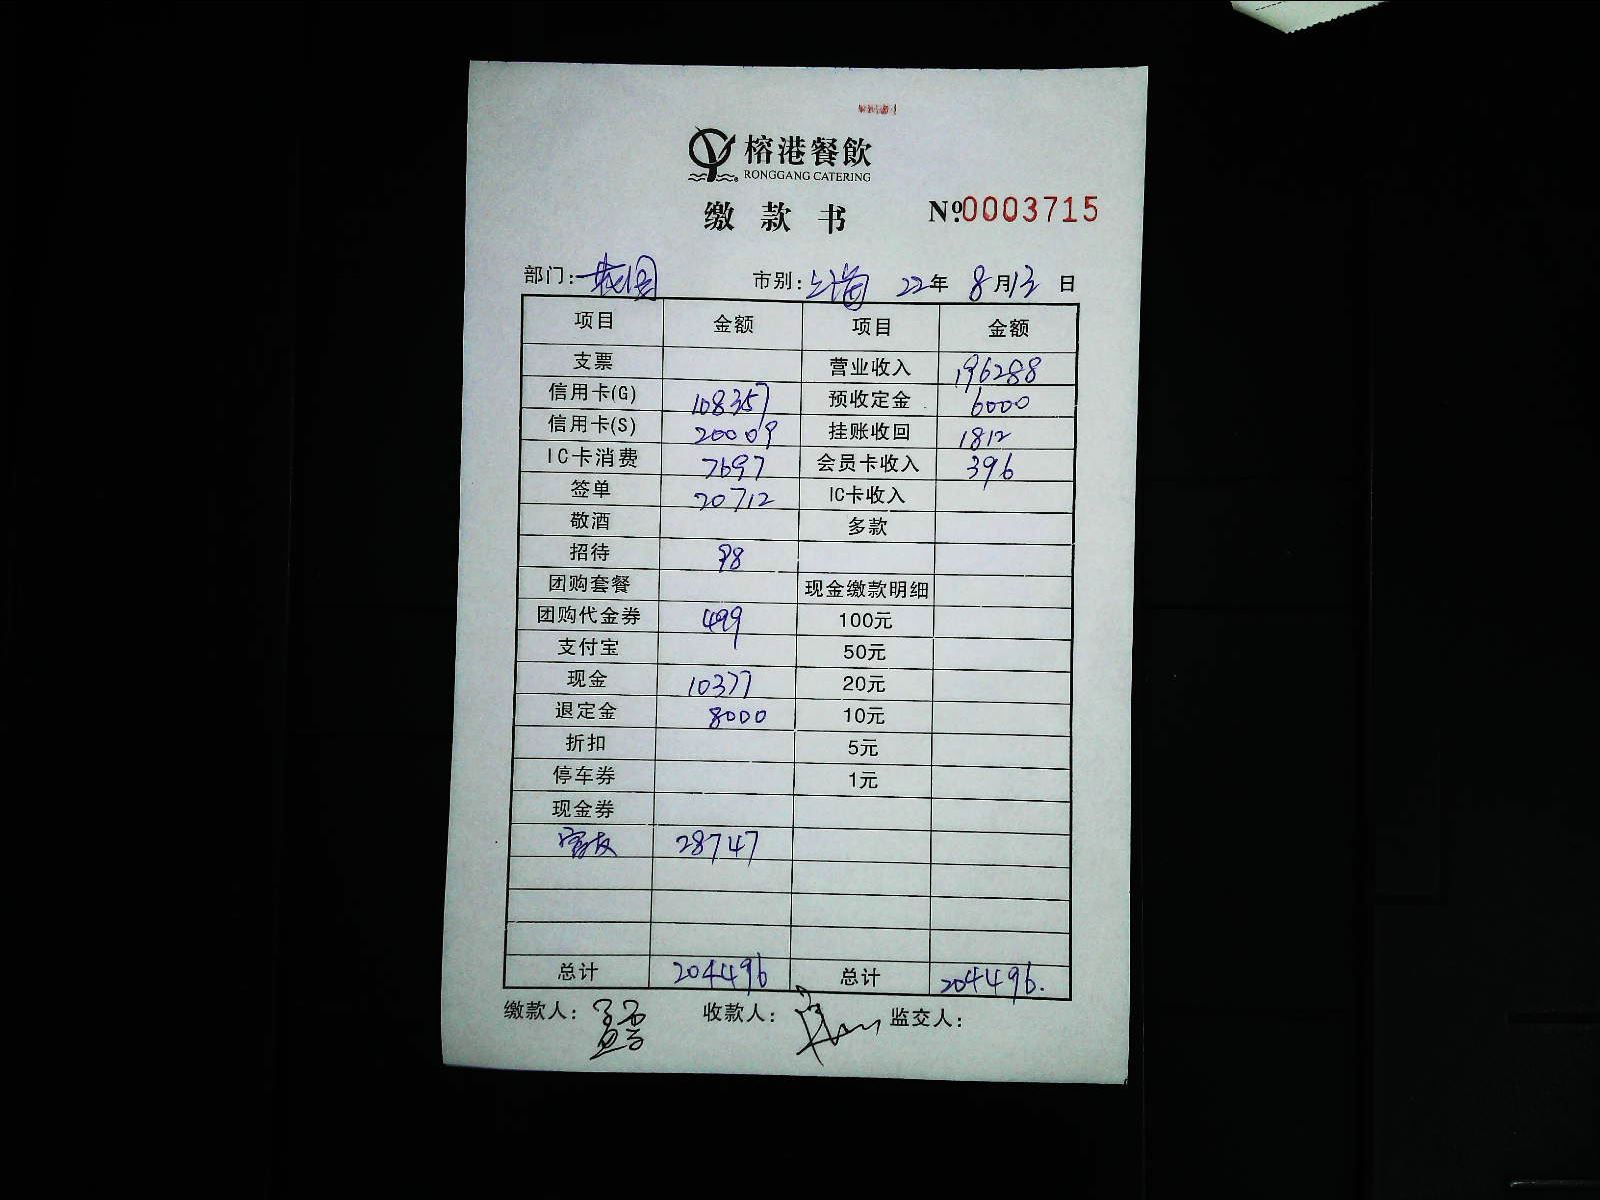 榕港餐飲
RONGGANG CATERING
缴款书 №0003715
部门: 市别:上海 22年 8月13日
项目 金额 项目 金额
支票 营业收入 196288
信用卡(G) 108357 预收定金 6000
信用卡(S) 20009 挂账收回 1812
IC卡消费 7697 会员卡收入 396
签单 20712 IC卡收入
敬酒 多款
招待 98
团购套餐 现金缴款明细
团购代金券 499 100元
支付宝 50元
现金 10377 20元
退定金 8000 10元
折扣 5元
停车券 1元
现金券
28747
总计 204496 总计 204496.
缴款人: 收款人: 监交人: